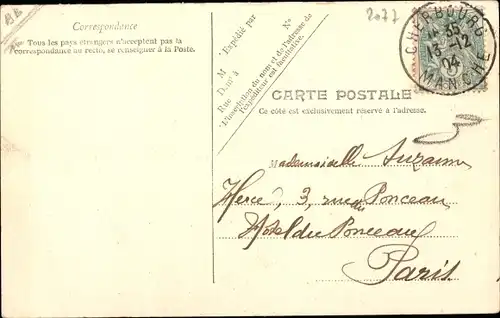 Correspondance
Tous les pays étrangers n'acceptent pas la
correspondance au recto, se renseigner à la Poste.
N°
Expédié par
M
D.meurᵗ à
Rue
L'inscription du nom et de l'adresse de
l'expéditeur est facultative.
2077
CHERBOURG
13-12
04
MANCHE
CARTE POSTALE
Ce côté est exclusivement réservé à l'adresse.
Mademoiselle Suzanne
3, rue du Ponceau
Hôtel du Ponceau
Paris